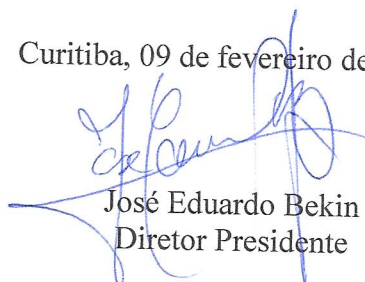 Curitiba, 09 de fevereiro de
José Eduardo Bekin
Diretor Presidente